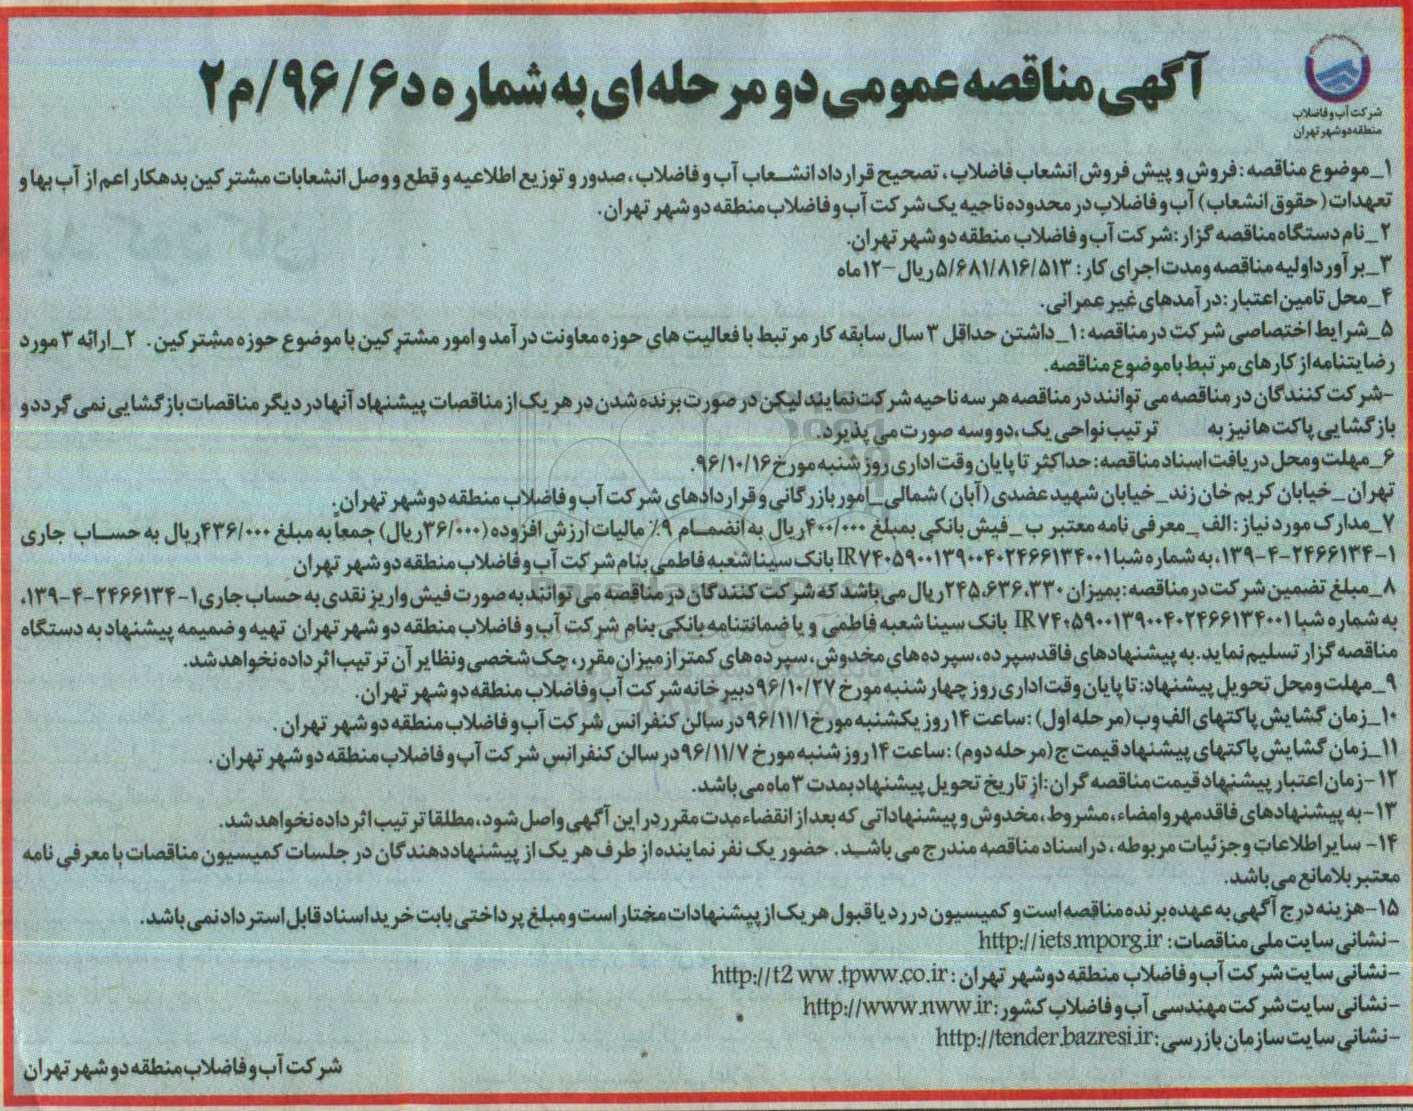 شرکت آب و فاضلاب
منطقه دو شهر تهران
آگهی مناقصه عمومی دو مرحله ای به شماره د۹۶/۶/م۲
۱_موضوع مناقصه : فروش و پیش فروش انشعاب فاضلاب ، تصحیح قرارداد انشعاب آب و فاضلاب ، صدور و توزیع اطلاعیه و قطع و وصل انشعابات مشترکین بدهکار اعم از آب بها و
تعهدات ( حقوق انشعاب ) آب و فاضلاب در محدوده ناحیه یک شرکت آب و فاضلاب منطقه دو شهر تهران.
۲_نام دستگاه مناقصه گزار :شرکت آب و فاضلاب منطقه دو شهر تهران.
۳_برآورد اولیه مناقصه و مدت اجرای کار : ۵/۶۸۱/۸۱۶/۵۱۳ ریال –۱۲ماه
۴_محل تامین اعتبار :درآمدهای غیر عمرانی.
۵_شرایط اختصاصی شرکت در مناقصه :۱_داشتن حداقل ۳ سال سابقه کار مرتبط با فعالیت های حوزه معاونت درآمد و امور مشترکین با موضوع حوزه مشترکین. ۲_ارائه ۳ مورد
رضایتنامه از کارهای مرتبط با موضوع مناقصه.
-شرکت کنندگان در مناقصه می توانند در مناقصه هر سه ناحیه شرکت نمایند لیکن در صورت برنده شدن در هر یک از مناقصات پیشنهاد آنها در دیگر مناقصات بازگشایی نمی گردد و
بازگشایی پاکت ها نیز به ترتیب نواحی یک ،دو و سه صورت می پذیرد.
۶_مهلت و محل دریافت اسناد مناقصه: حداکثر تا پایان وقت اداری روز شنبه مورخ ۹۶/۱۰/۱۶.
تهران _ خیابان کریم خان زند_ خیابان شهید عضدی (آبان ) شمالی _امور بازرگانی و قراردادهای شرکت آب و فاضلاب منطقه دو شهر تهران.
۷_مدارک مورد نیاز : الف_ معرفی نامه معتبر ب _ فیش بانکی بمبلغ ۴۰۰/۰۰۰ ریال به انضمام ۹٪ مالیات ارزش افزوده (۳۶/۰۰۰ریال) جمعا به مبلغ ۴۳۶/۰۰۰ریال به حساب جاری
۱-۲۴۶۶۱۳۴-۴-۱۳۹، به شماره شبا IR۷۴۰۵۹۰۰۱۳۹۰۰۴۰۲۴۶۶۱۳۴۰۰۱ بانک سینا شعبه فاطمی بنام شرکت آب و فاضلاب منطقه دو شهر تهران
۸_مبلغ تضمین شرکت در مناقصه: بمیزان ۲۴۵،۶۳۶،۳۳۰ریال می باشد که شرکت کنندگان در مناقصه می توانند به صورت فیش واریز نقدی به حساب جاری۱-۲۴۶۶۱۳۴-۴-۱۳۹،
به شماره شبا IR۷۴۰۵۹۰۰۱۳۹۰۰۴۰۲۴۶۶۱۳۴۰۰۱ بانک سینا شعبه فاطمی و یا ضمانتنامه بانکی بنام شرکت آب و فاضلاب منطقه دو شهر تهران تهیه و ضمیمه پیشنهاد به دستگاه
مناقصه گزار تسلیم نماید.به پیشنهادهای فاقد سپرده، سپرده های مخدوش، سپرده های کمتر از میزان مقرر، چک شخصی و نظایر آن ترتیب اثر داده نخواهد شد.
۹_مهلت و محل تحویل پیشنهاد: تا پایان وقت اداری روز چهارشنبه مورخ ۹۶/۱۰/۲۷ دبیرخانه شرکت آب و فاضلاب منطقه دو شهر تهران.
۱۰_زمان گشایش پاکتهای الف و ب(مرحله اول) :ساعت ۱۴ روز یکشنبه مورخ ۹۶/۱۱/۱ در سالن کنفرانس شرکت آب و فاضلاب منطقه دو شهر تهران .
۱۱_زمان گشایش پاکتهای پیشنهاد قیمت ج(مرحله دوم) : ساعت ۱۴ روز شنبه مورخ ۹۶/۱۱/۷ در سالن کنفرانس شرکت آب و فاضلاب منطقه دو شهر تهران .
۱۲-زمان اعتبار پیشنهاد قیمت مناقصه گران: از تاریخ تحویل پیشنهاد بمدت ۳ ماه می باشد.
۱۳-به پیشنهادهای فاقد مهر و امضاء، مشروط، مخدوش و پیشنهاداتی که بعد از انقضاء مدت مقرر در این آگهی واصل شود، مطلقا ترتیب اثر داده نخواهد شد.
۱۴- سایر اطلاعات و جزئیات مربوطه ، در اسناد مناقصه مندرج می باشد. حضور یک نفر نماینده از طرف هر یک از پیشنهاد دهندگان در جلسات کمیسیون مناقصات با معرفی نامه
معتبر بلامانع می باشد.
۱۵-هزینه درج آگهی به عهده برنده مناقصه است و کمیسیون در رد یا قبول هر یک از پیشنهادات مختار است و مبلغ پرداختی بابت خرید اسناد قابل استرداد نمی باشد.
-نشانی سایت ملی مناقصات : http://iets.mporg.ir
-نشانی سایت شرکت آب و فاضلاب منطقه دو شهر تهران : http://t2 ww.tpww.co.ir
-نشانی سایت شرکت مهندسی آب و فاضلاب کشور : http://www.nww.ir
-نشانی سایت سازمان بازرسی : http://tender.bazresi.ir
شرکت آب و فاضلاب منطقه دو شهر تهران